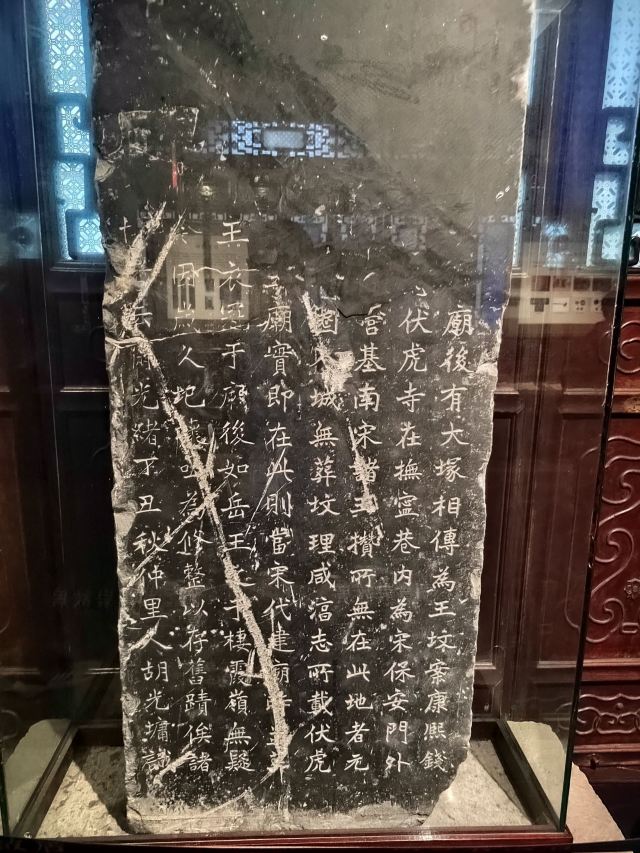 廟後有大塚相傳為王坟案康熙錢
伏虎寺在撫寧巷內為宋保安門外
營基南宋諸王攢所無在此地者元
入城無葬坟理咸湻志所載伏虎
廟實即在此則當宋代建廟
王衣冠于廟後如岳王之于棲霞嶺無疑
因久圯亟為修整以存舊蹟俟諸
云爾光緒丁丑秋仲里人胡光墉識